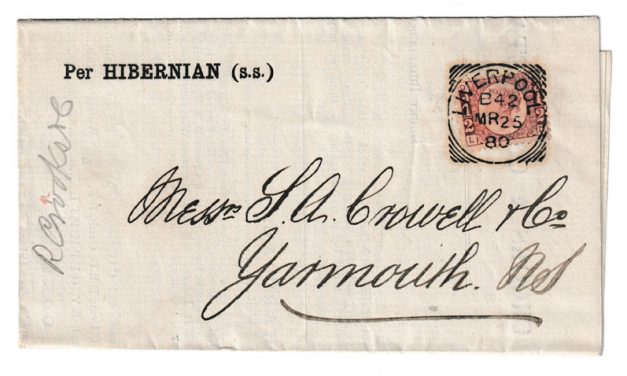 Per HIBERNIAN (S.S.)
LIVERPOOL
B42
MR25
80
Messrs S. A. Crowell & Co
Yarmouth. NS